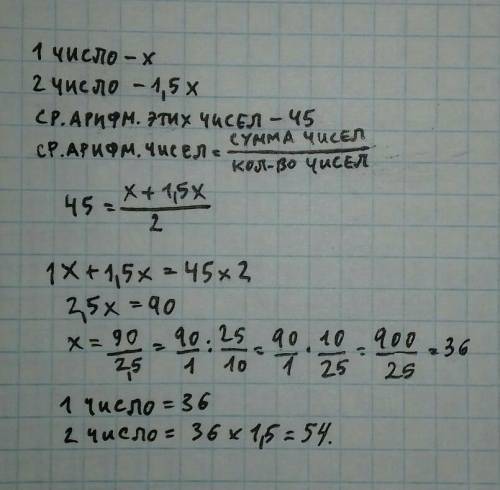 1 число – x
2 число – 1,5x
ср. арифм. этих чисел – 45
ср. арифм. чисел = сумма чисел / кол-во чисел
45 = x + 1,5x / 2
1x + 1,5x = 45 x 2
2,5x = 90
x = 90/2,5 = 90/1 : 25/10 = 90/1 · 10/25 = 900/25 = 36
1 число = 36
2 число = 36 x 1,5 = 54.